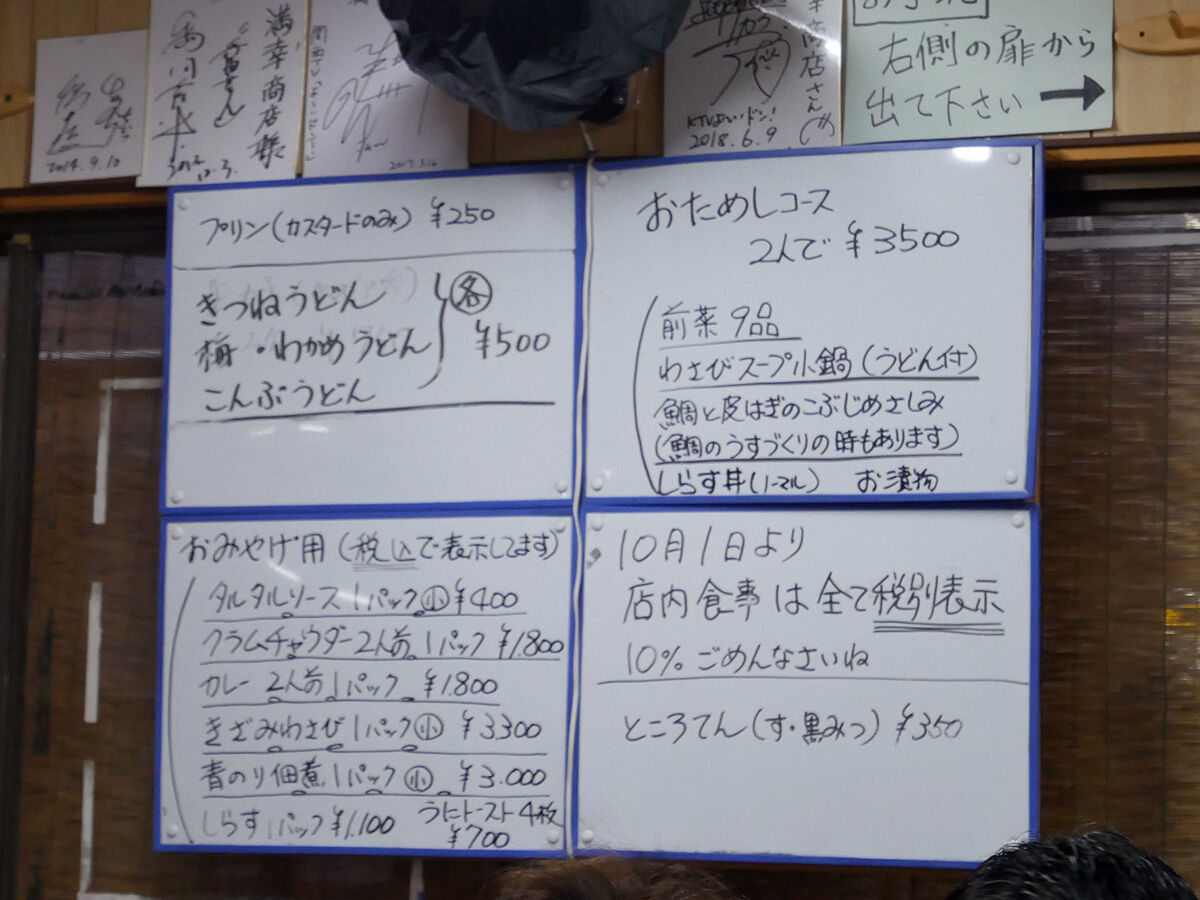 2014.9.10
満幸商店様
関西TV
2017.3.16
商店さん
KTVよ〜いドン!
2018.6.9
右側の扉から
出て下さい →
プリン(カスタードのみ) ¥250
きつねうどん
梅・わかめうどん 各 ¥500
こんぶうどん
おためしコース
2人で ¥3500
前菜 9品
わさびスープ小鍋(うどん付)
鯛と皮はぎのこぶじめさしみ
(鯛のうすづくりの時もあります)
しらす丼(ノーマル) お漬物
おみやげ用(税込で表示してます)
タルタルソース 1パック 小 ¥400
クラムチャウダー 2人前 1パック ¥1.800
カレー 2人前 1パック ¥1.800
きざみわさび 1パック 小 ¥3300
青のり佃煮 1パック 小 ¥3.000
しらす 1パック ¥1.100 うにトースト4枚
¥700
10月1日より
店内食事は全て税別表示
10% ごめんなさいね
ところてん(す・黒みつ) ¥350